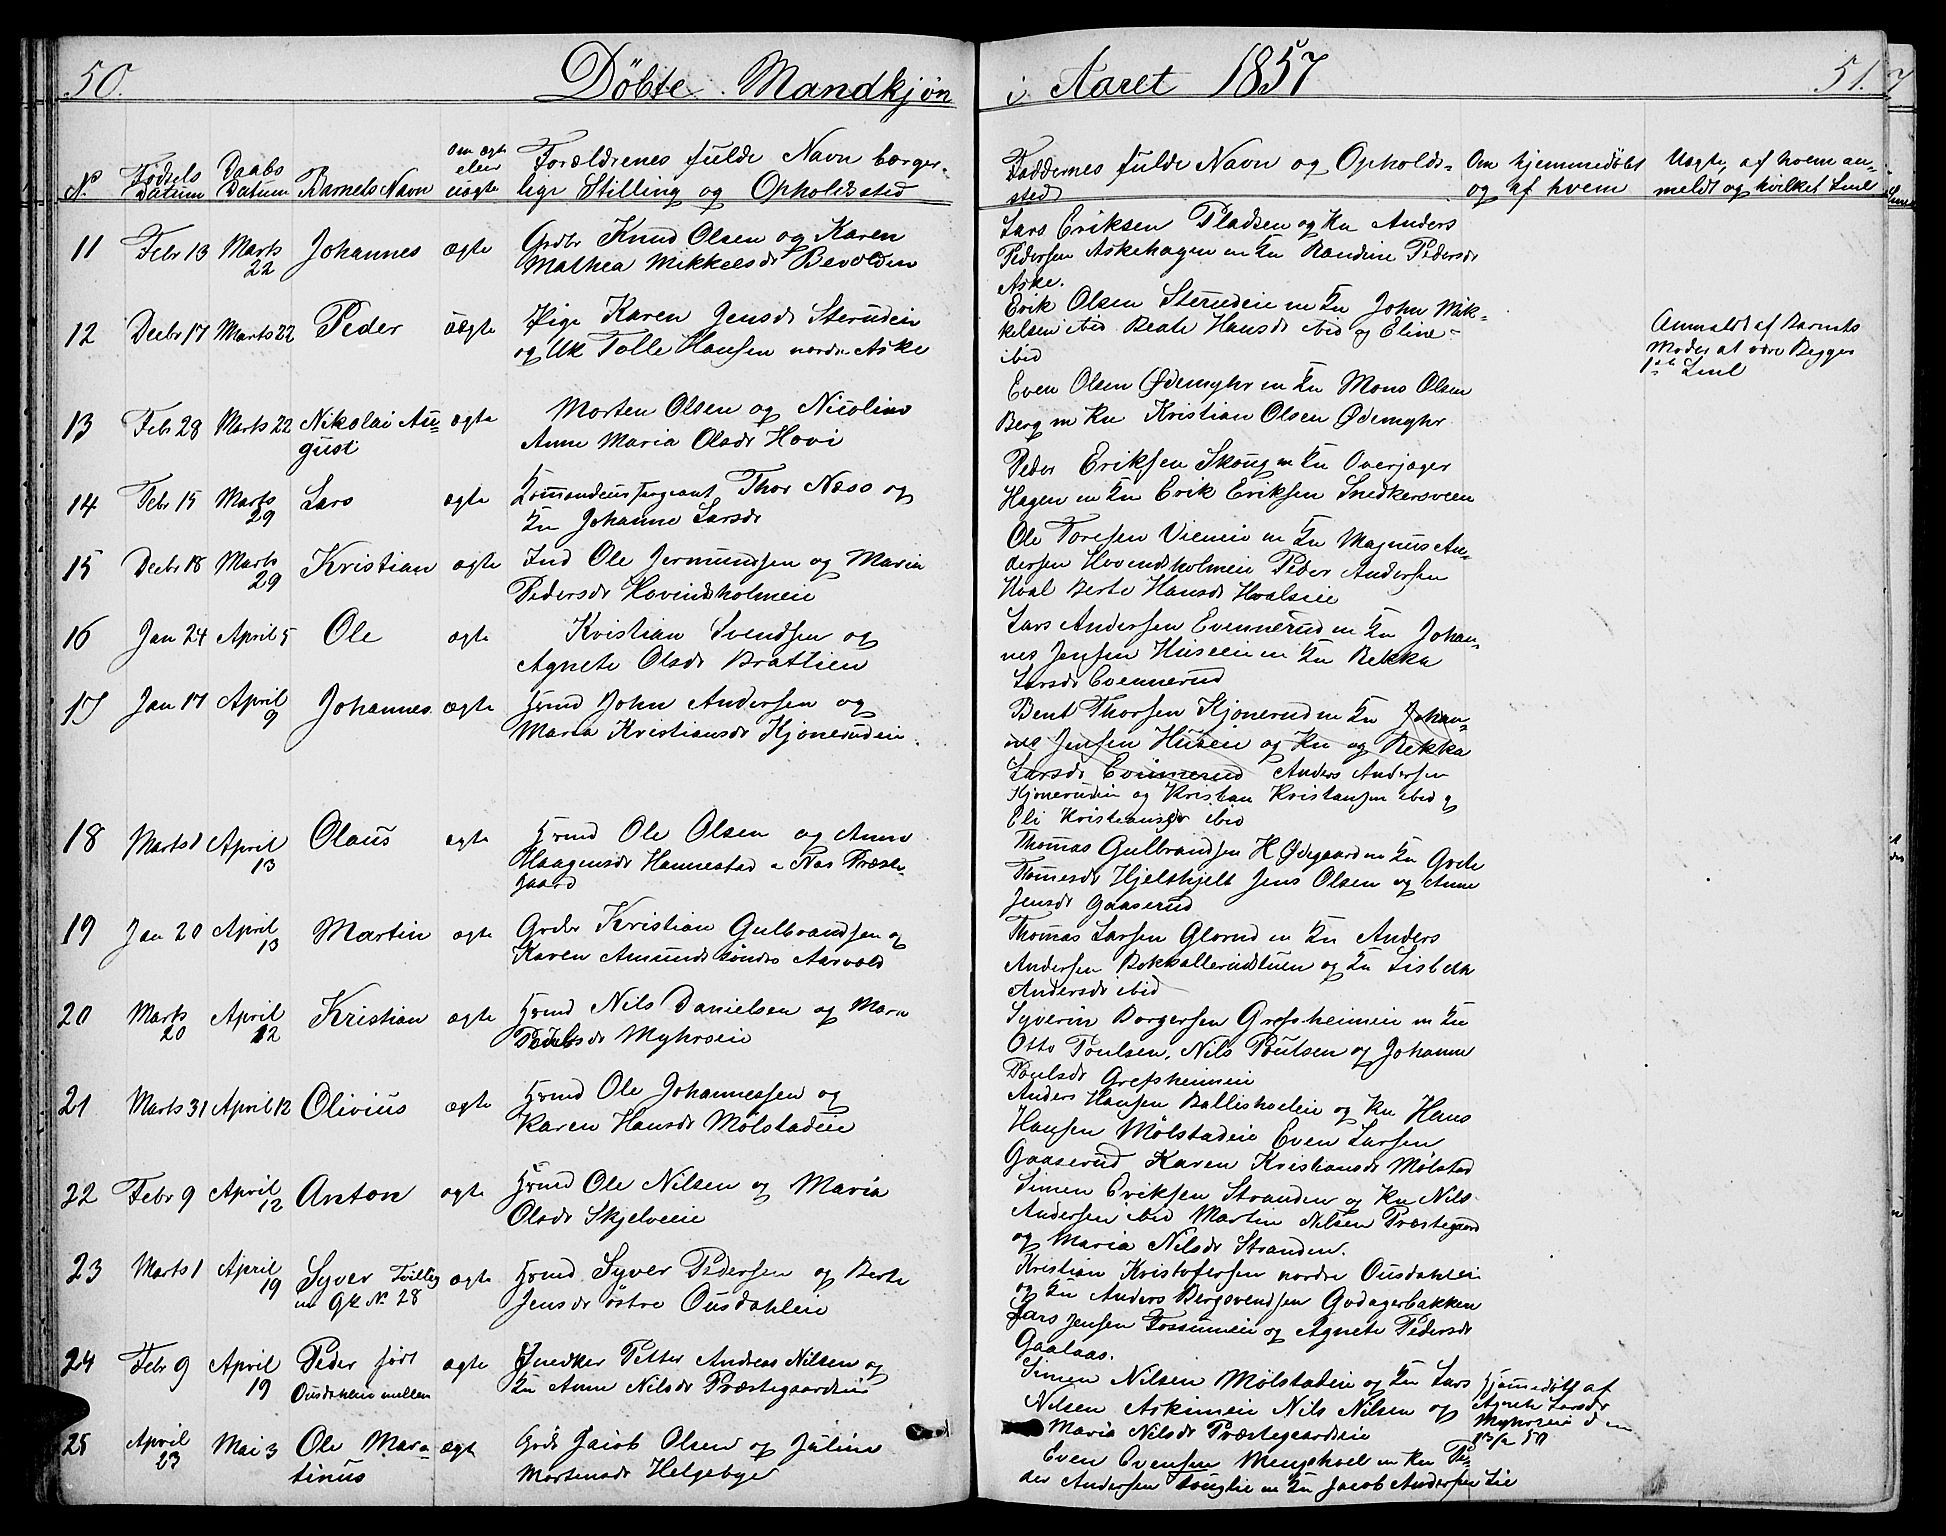 50.
Døbte Mandkjøn
i Aaret 1857
51.
No
Fødsels Datum
Daabs Datum
Barnets Navn
om ægte eler uægte
Forældrenes fulde Navn borger-
lige Stilling og Opholdssted
Faddernes fulde Navn og Opholds-
sted
Om hjemmedøbt
og af hvem
Uægte, af hvem an-
meldt og hvilket Leie
11 Febr 13 Marts 22 Johannes ægte
Grdbr Knud Olsen og Karen
Mathea Mikkelsdr Bevolden
Lars Eriksen Pladsen og Ku Anders
Pedersen Askehagen m Ku Randine Pedersdr
Aske.
12 Decbr 17 Marts 22 Peder uægte
Pige Karen Jensdr Sterudeie
og Uk Tolle Hansen nordre Aske
Erik Olsen Sterudeie m Ku John Mik-
kelsen ibid Beate Hansdr ibid og Eline
ibid
Anmeldt af Barnets
Moder at være Begges
1ste Leie
13 Febr 28 Marts 22 Nikolai Au-
gust ægte
Morten Olsen og Nicoline
Anne Maria Olsdr Hovi
Even Olsen Ødemyhr m Ku Mons Olsen
Berg m Ku Kristian Olsen Ødemyhr
14 Febr 15 Marts 29 Lars ægte
Komandeursergeant Thor Næss og
Ku Johanne Larsdr
Peder Eriksen Skoug m Ku Overjæger
Hagen m Ku Erik Eriksen Snedkersveen
15 Decbr 18 Marts 29 Kristian ægte
Ind Ole Jermundsen og Maria
Pedersdr Hovindsholmeie
Ole Toresen Vieneie m Ku Magnus An-
dersen Hovindsholmeie Peder Andersen
Hval Berte Hansdr Hvalseie
16 Jan 24 April 5 Ole ægte
Kristian Svendsen og
Agnete Olsdr Bratlien
Lars Andersen Evennerud m Ku Johan-
nes Jensen Huseeie m Ku Rekka
Larsdr Evennerud
17 Jan 17 April 9 Johannes ægte
Hrmd John Andersen og
Maria Kristiansdr Kjonerudeie.
Bent Thorsen Kjonerud m Ku Johan-
nes Jensen Huseie og Ku og Rekka
Larsdr Evinnerud Anders Andersen
Kjonerudeie og Kristian Kristansen ibid og
Eli Kristiansdr ibid
18 Marts 1 April 13 Olaus ægte
Hrmd Ole Olsen og Anne
Haagensdr Hannestad Næs Præste-
gaard
Thomas Gulbrandsen H Ødegaard m Ku Grete
Tomesdr Hjelshjelt Jens Olsen og Anne
Jensdr Gaaserud
19 Jan 20 April 13 Martin ægte
Grdbr Kristian Gulbrandsen og
Karen Amundsdr søndre Aarvold
Thomas Larsen Glorud m Ku Anders
Andersen Bekkallerudstuen og Ku Lisbeth
Andersdr ibid
20 Marts 20 April 12 Kristian ægte
Hrmd Nils Danielsen og Maria
Poulsdr Myhrseie
Syverin Borgersen Grefsheimeie m Ku
Otto Poulsen, Nils Poulsen og Johanne
Poulsdr Grefsheimeie
21 Marts 31 April 12 Olivius ægte
Hrmd Ole Johannessen og
Karen Hansdr Mølstadeie
Anders Hansen Ballishoeleie og Ku Hans
Hansen Mølstadeie Even Larsen
Gaaserud Karen Kristiansdr Mølstad
22 Febr 9 April 12 Anton ægte
Hrmd Ole Nilsen og Maria
Olsdr Skjelveeie
Simen Eriksen Stranden og Ku Nils
Andersen ibid Martin Nilsen Præstegaard
og Maria Nilsdr Stranden.
23 Marts 1 April 19 Syver Tvilling
m Qk No 28 ægte
Hrmd Syver Pedersen og Berte
Jensdr østre Ousdahleie
Kristian Kristofersen nordre Ousdahleie
og Ku Anders Bergsvendsen Godagerbakken
Lars Jensen Fossumeie og Agnete Pedersdr
Gaalaas.
24 Febr 9 April 19 Peder født
Ousdahleie mellem ægte
Snedker Petter Andreas Nilsen og
Ku Anne Nilsdr Præstegaardseie
Simen Nilsen Mølstadeie og Ku Lars
Nilsen Askimeie Nils Nilsen og
Maria Nilsdr Præstegaardseie
Hjemmedøbt af
Agnete Larsdr
Myhrseie den
13/2 57
25 April 23 Mai 3 Ole Mar-
tinus ægte
Grdbr Jacob Olsen og Juline
Mortensdr Helgebye
Even Evensen Mengshoel m Ku Pe-
der Andersen m Ku Jacob Andersen Lie